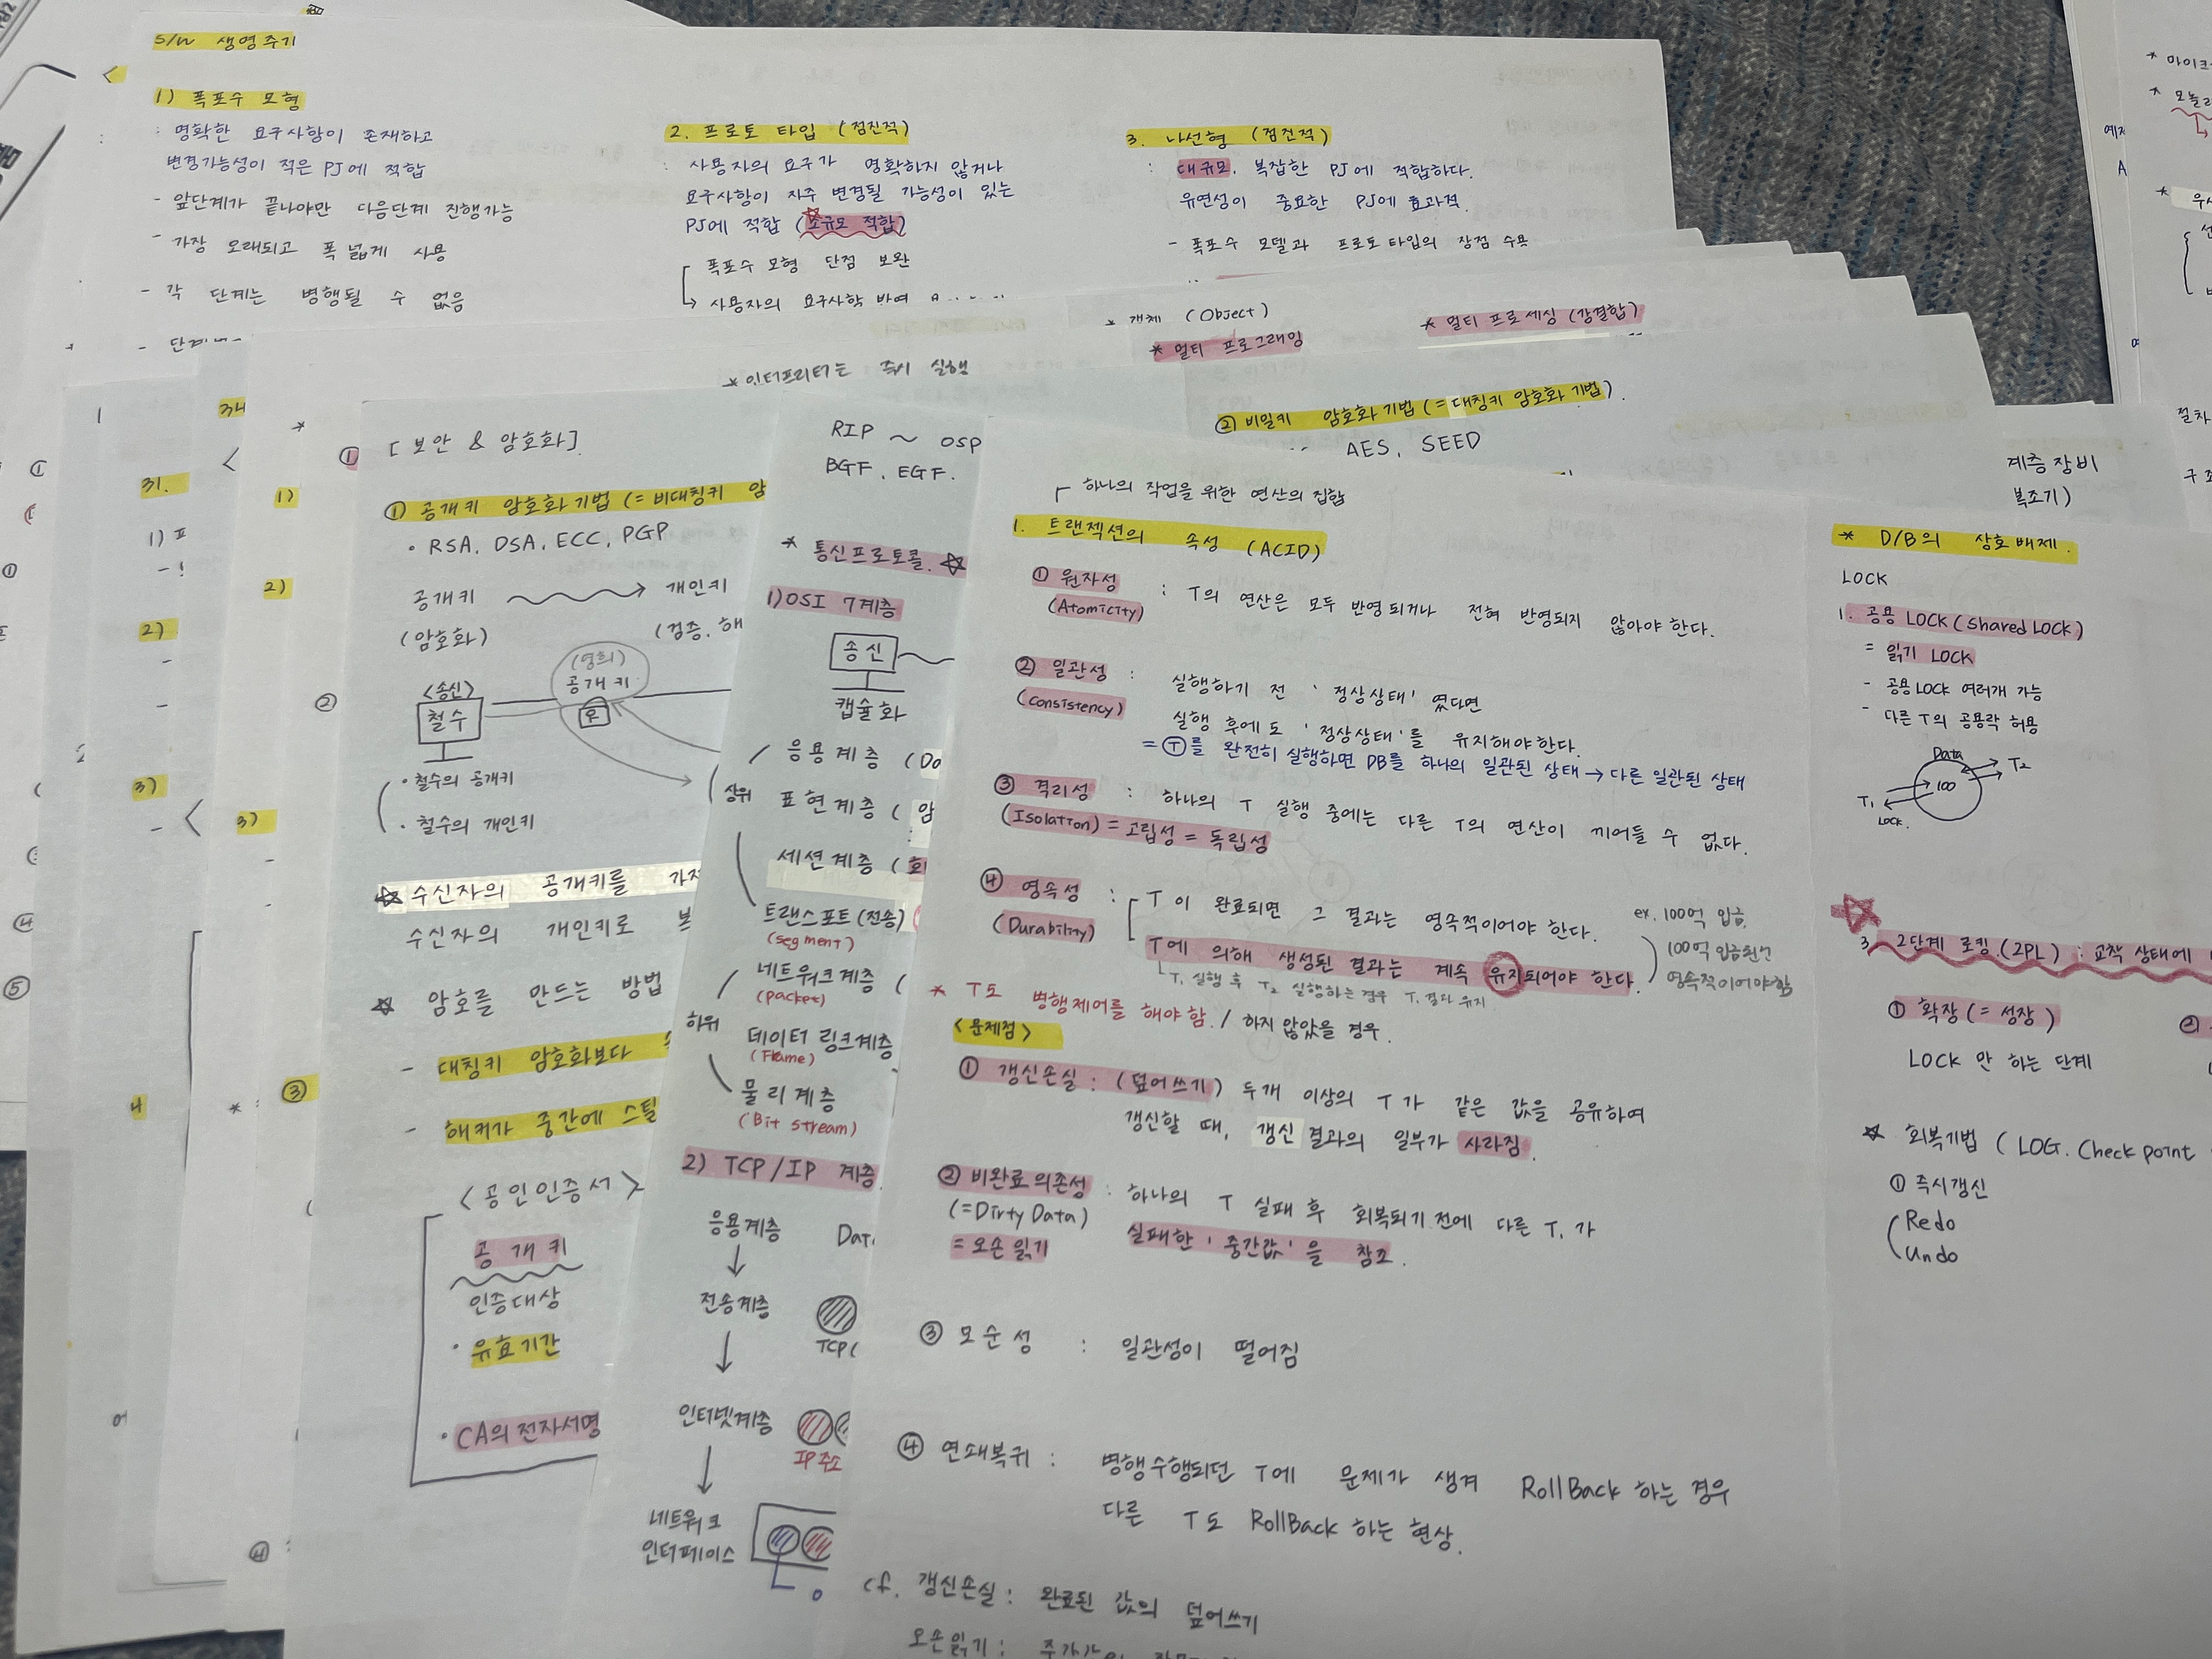 S/W 생명주기
1) 폭포수 모형
: 명확한 요구사항이 존재하고
변경가능성이 적은 PJ에 적합
- 앞단계가 끝나야만 다음단계 진행가능
- 가장 오래되고 폭 넓게 사용
- 각 단계는 병행될 수 없음
2. 프로토 타입 (점진적)
: 사용자의 요구가 명확하지 않거나
요구사항이 자주 변경될 가능성이 있는
PJ에 적합 (소규모 적합)
폭포수 모형 단점 보완
→ 사용자의 요구사항 반영
3. 나선형 (점진적)
: 대규모, 복잡한 PJ에 적합하다.
유연성이 중요한 PJ에 효과적
- 폭포수 모델과 프로토 타입의 장점 수용
* 개체 (Object)
* 멀티 프로그래밍
* 멀티 프로세싱 (강결합)
* 인터프리터는 즉시 실행
② 비밀키 암호화 기법 (= 대칭키 암호화 기법)
AES, SEED
계층 장비
복조기)
31.
34
1)
2)
3)
4
[보안 & 암호화]
① 공개키 암호화 기법 (= 비대칭키 암
• RSA, DSA, ECC, PGP
공개키 → 개인키
(암호화) (검증, 해
(영희)
공개키
<송신>
철수
• 철수의 공개키
• 철수의 개인키
☆ 수신자의 공개키를 가져
수신자의 개인키로 복
☆ 암호를 만드는 방법
- 대칭키 암호화보다
- 해커가 중간에 스틸
<공인인증서>
공개키
인증대상
• 유효기간
• CA의 전자서명
RIP ~ OSP
BGF, EGF.
* 통신프로토콜. ☆
1) OSI 7계층
송신
캡슐화
상위
응용계층 (Da
표현계층 (암
세션계층 (회
트랜스포트(전송)
(segment)
네트워크계층 (
(packet)
하위
데이터 링크계층
(Frame)
물리계층
(Bit stream)
2) TCP/IP 계층
응용계층 Dat
↓
전송계층
TCP(
↓
인터넷계층
IP주소
↓
네트워크
인터페이스
하나의 작업을 위한 연산의 집합
1. 트랜젝션의 속성 (ACID)
① 원자성 : T의 연산은 모두 반영되거나 전혀 반영되지 않아야 한다.
(Atomicity)
② 일관성 : 실행하기 전 '정상상태' 였다면
(consistency) 실행 후에도 '정상상태'를 유지해야한다.
= Ⓣ를 완전히 실행하면 DB를 하나의 일관된 상태 → 다른 일관된 상태
③ 격리성 : 하나의 T 실행 중에는 다른 T의 연산이 끼어들 수 없다.
(Isolation) = 고립성 = 독립성
④ 영속성 : T이 완료되면 그 결과는 영속적이어야 한다.
(Durability) T에 의해 생성된 결과는 계속 유지되어야 한다.
T₁ 실행 후 T₂ 실행하는 경우 T₁ 결과 유지
ex. 100억 입금
100억 입금된건
영속적이어야함
* T도 병행제어를 해야함. / 하지 않았을 경우.
<문제점>
① 갱신손실 : (덮어쓰기) 두개 이상의 T가 같은 값을 공유하여
갱신할 때, 갱신 결과의 일부가 사라짐.
② 비완료의존성 : 하나의 T 실패 후 회복되기 전에 다른 T₁가
(=Dirty Data) 실패한 '중간값'을 참조.
= 오손 읽기
③ 모순성 : 일관성이 떨어짐
④ 연쇄복귀 : 병행수행되던 T에 문제가 생겨 RollBack 하는 경우
다른 T도 RollBack 하는 현상.
cf. 갱신손실 : 완료된 값의 덮어쓰기
오손읽기 :
* D/B의 상호배제.
LOCK
1. 공용 LOCK (shared LOCK)
= 읽기 LOCK
- 공용 LOCK 여러개 가능
- 다른 T의 공용락 허용
Data
100
T₂
T₁
LOCK.
3. 2단계 로킹.(2PL) : 교착 상태에
① 확장 (= 성장)
LOCK 만 하는 단계
☆ 회복기법 (LOG. Check point
① 즉시갱신
Redo
Undo